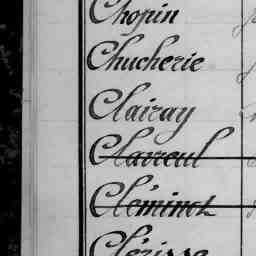 Chopin
Chucherie
Clairay
Claveul
Cléminot
Clérisse